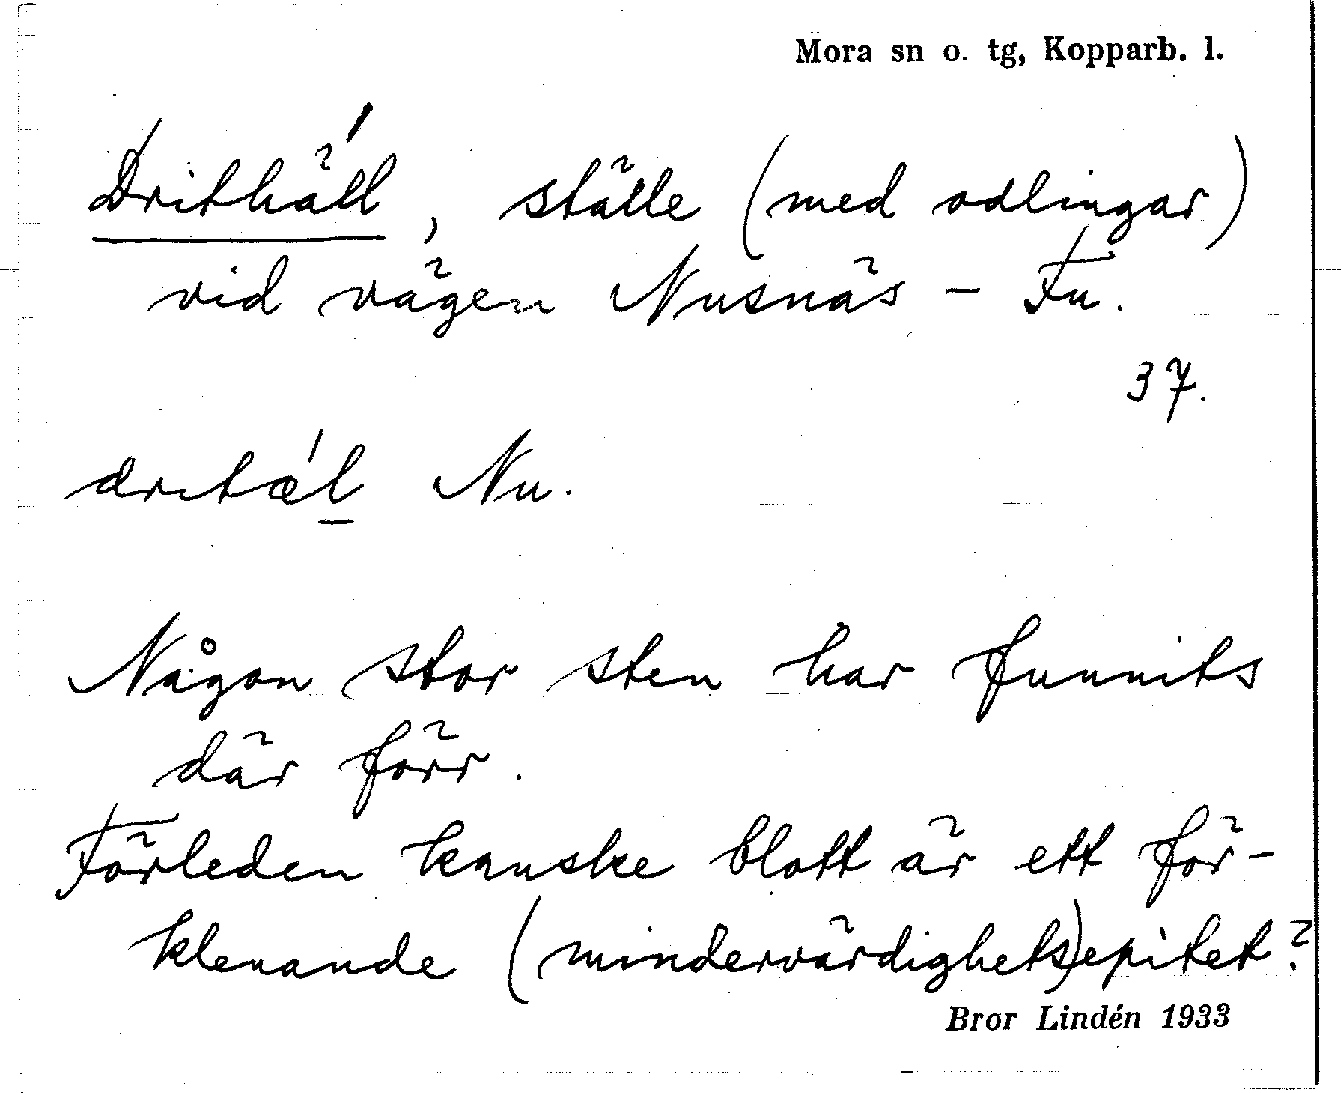 Mora sn o. tg, Kopparb. l.
Drithäll, ställe (med odlingar)
vid vägen Nusnäs – Fu.
37.
dritæ´l Nu.
Någon stor sten har funnits
där förr.
Förleden kanske blott är ett för-
klenande (mindervärdighets)epitet?
Bror Lindén 1933